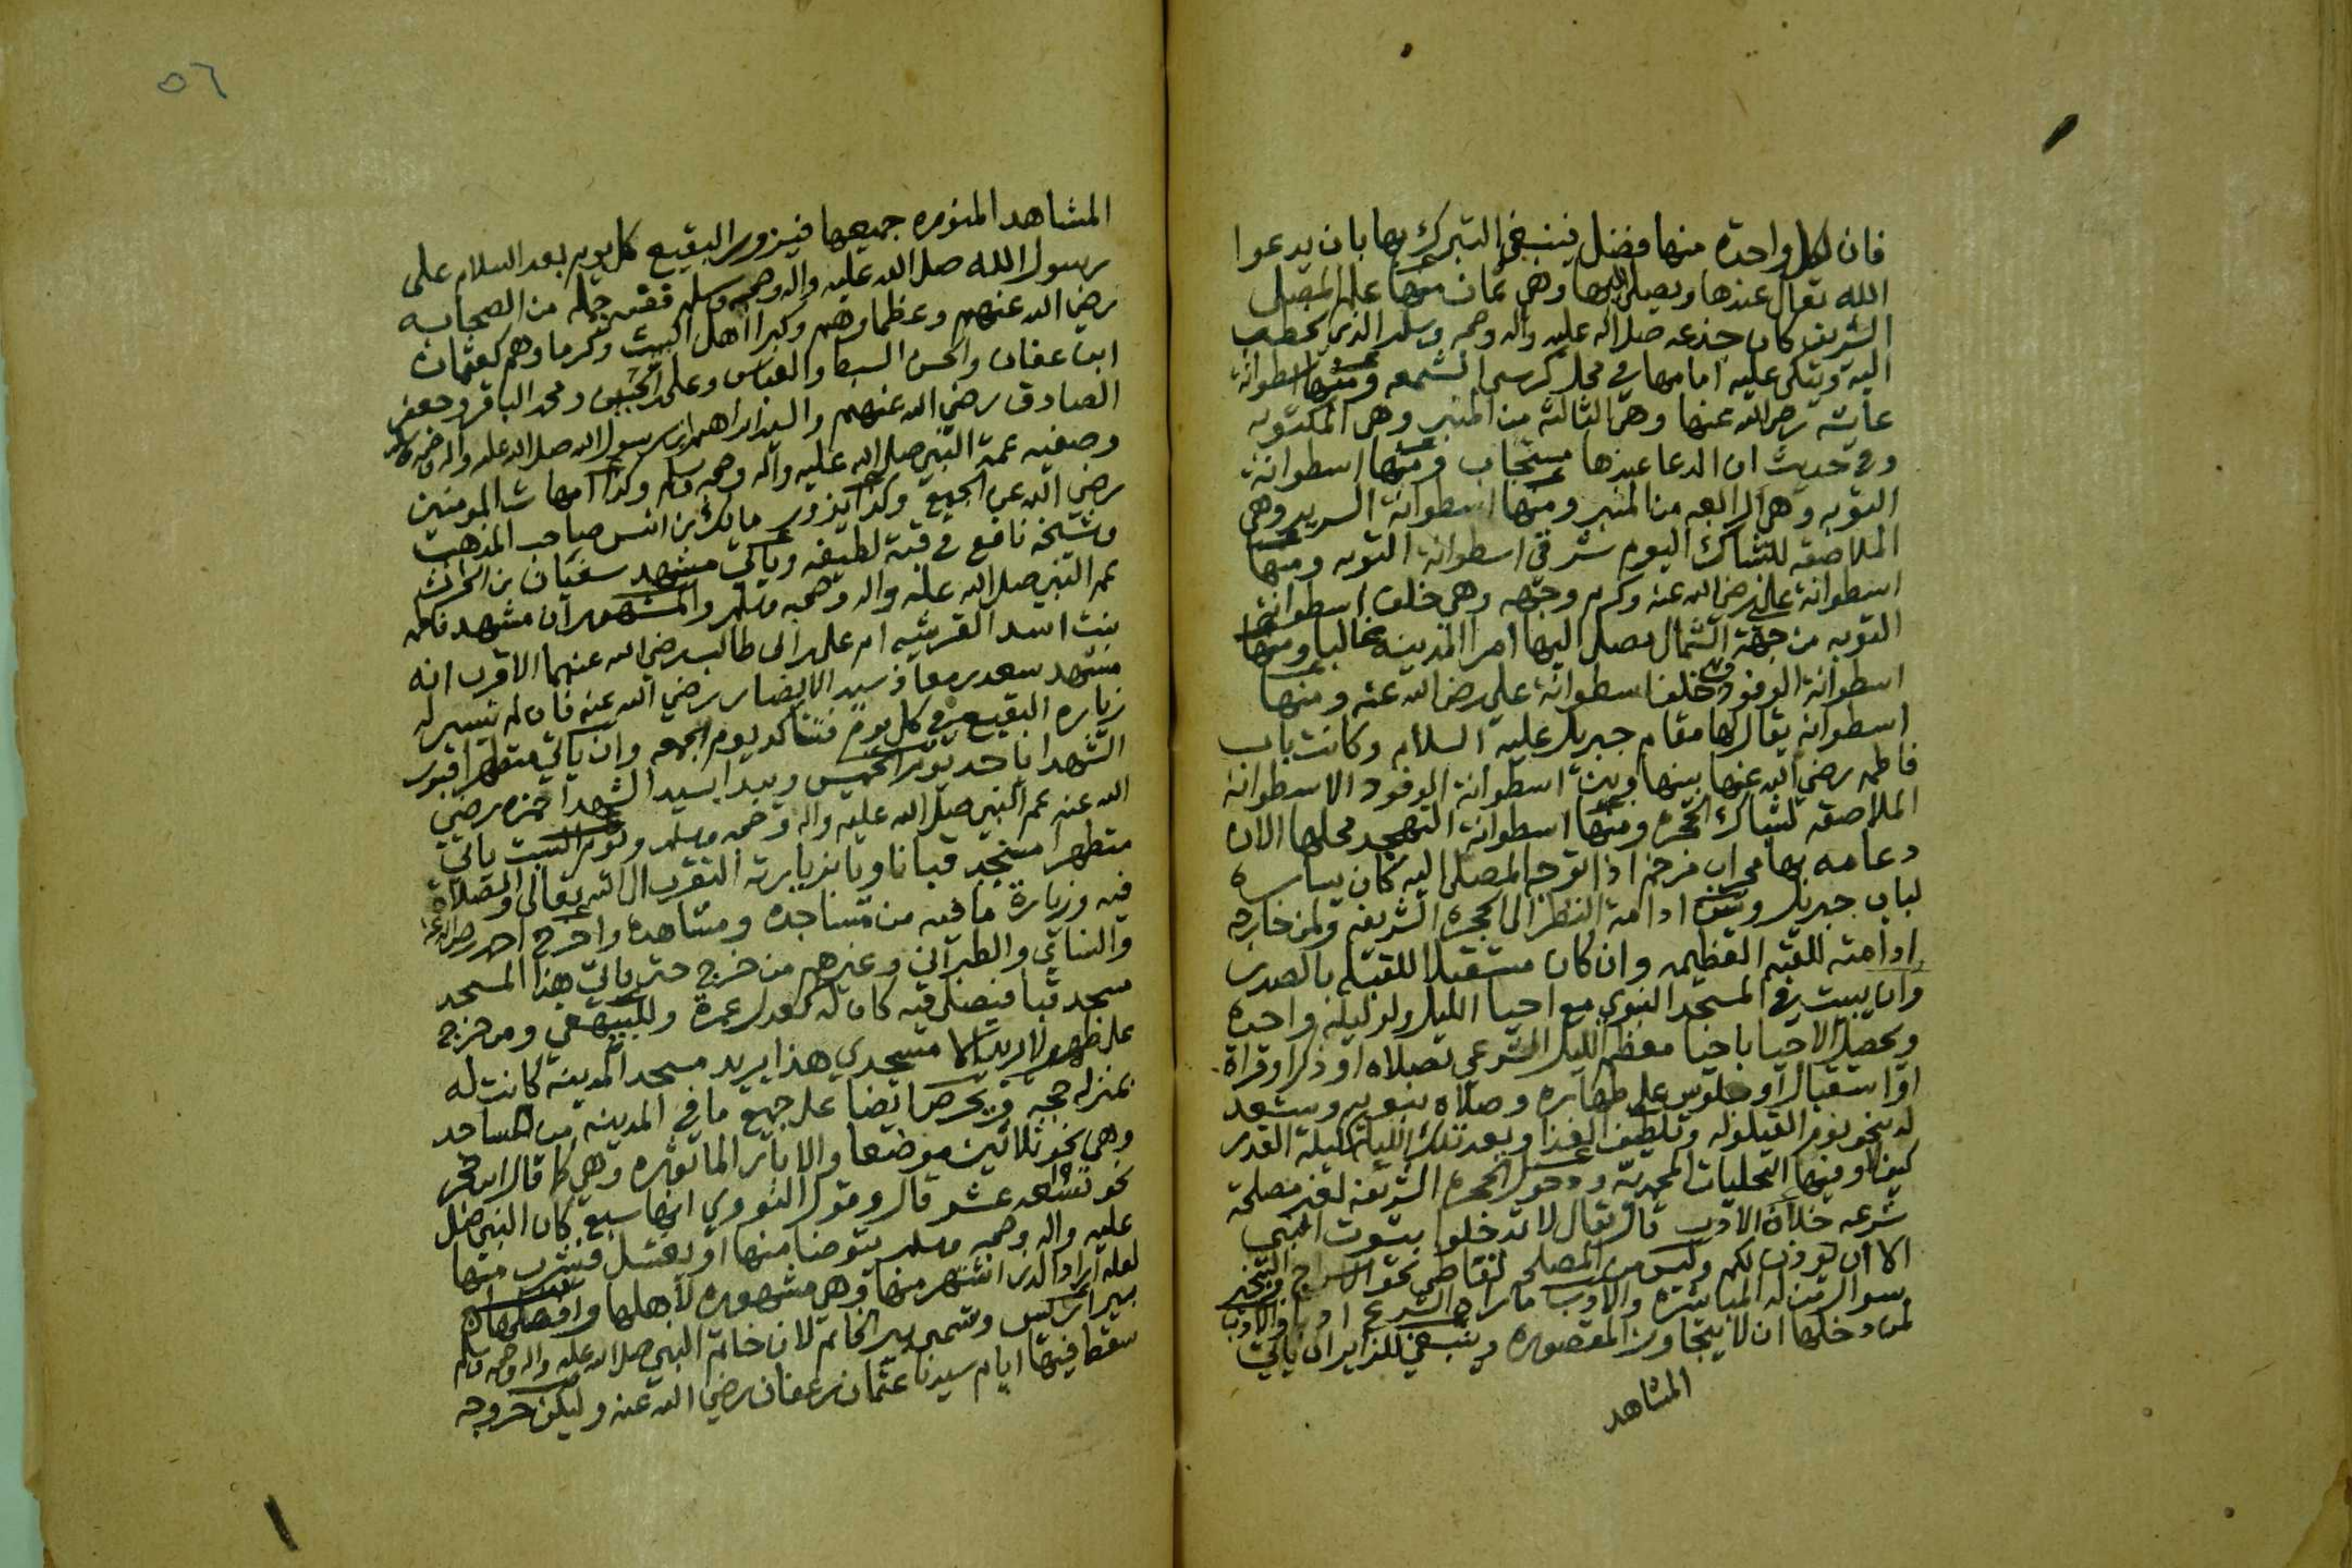 فان لكل واحدة منها فضل فينبغي التبرك بها بان يدعوا
الله تعالى عندها ويصلى اليها وهي ثمان منها علم المصلى
الشريف كان جذعه صلى الله عليه واله وصحبه وسلم الذي يخطب
اليه ويتكي عليه امامها في محل كرسي الشمعه ومنها اسطوانة
عايشه رضى الله عنها وهى الثالثه من المنبر وهى المكتوبه
وفى حديث ان الدعا عندها مستجاب ومنها اسطوانة
التوبه وهى الرابعه من المنبر ومنها اسطوانة السرير وهي
الملاصقه للشباك اليوم شرقى اسطوانة التوبه ومنها
اسطوانة على رضى الله عنه وكرم وجهه وهي خلف اسطوانة
التوبه من جهة الشمال يصلى اليها امرا المدينه غالبا ومنها
اسطوانة الوفود وهى خلف اسطوانة على رضى الله عنه ومنها
اسطوانة يقال لها مقام جبريل عليه السلام وكانت باب
فاطمه رضى الله عنها بينها وبين اسطوانة الوفود الاسطوانة
الملاصقه لشباك الحجره ومنها اسطوانة التهجد محلها الان
دعامه بها محراب مرخم اذا توجه المصلى اليه كان يساره
لباب جبريل ويسن ادامة النظر الى الحجرة الشريفه ولمن خارجه
ادامته للقبه العظيمه وان كان مستقبلا للقبله بالصدر
وان يبيت في المسجد النبوي مع احيا الليل ولو ليلة واحدة
ويحصل الاحيا باحيا معظم الليل الشرعي بصلاه او ذكر او قراة
او استقبال او جلوس على طهاره وصلاه بنويه ويستعد
له بنحو نوم القيلوله وتلطيف الغذا وبعد تلك الليلة كليلة القدر
كيف لا وفيها التجليات المحمديه ودخول الحجرة الشريفه لغير مصلحة
شرعيه خلاف الادب قال تعالى لا تدخلوا بيوت النبى
الا ان يوذن لكم وليس من المصلحه تعاطي نحو الاسراج والتبخير
سوا لمن له المباشره والادب ماراه الشرع ادبا والادب
لمن دخلها ان لا يتجاوز المقصوره وينبغي للزاير ان ياتي
المشاهد
٥٦
المشاهد المنوره جميعها فيزور البقيع كل يوم بعد السلام على
رسول الله صلى الله عليه واله وصحبه وسلم ففيه جمله من الصحابه
رضي الله عنهم وعظماوهم وكبرا اهل البيت وكرماوهم كعثمان
ابن عفان والحسن السبط والعباس وعلى بن الحسين ومحمد الباقر وجعفر
الصادق رضي الله عنهم والسيد ابراهيم ابن رسول الله صلى الله عليه واله وصحبه وسلم
وصفيه عمة النبى صلى الله عليه واله وصحبه وسلم وكذا امهات المومنين
رضي الله عن الجميع وكذا يزور مالك بن انس صاحب المذهب
وشيخه نافع في قبة لطيفه وياتي مشهد سفيان بن الحارث
عم النبى صلى الله عليه واله وصحبه وسلم والمشهور ان مشهد فاطمه
بنت اسد القرشيه ام على بن ابى طالب رضى الله عنهما الاقرب انه
مشهد سعد بن معاذ سيد الانصار رضي الله عنه فان لم تتيسر له
زيارة البقيع في كل يوم فتتاكد يوم الجمعه وان ياتي متطهرا قبور
الشهدا باحد يوم الخميس ويبدا بسيد الشهدا حمزه رضي
الله عنه عم النبى صلى الله عليه واله وصحبه وسلم ويوم السبت ياتي
متطهرا مسجد قبا ناويا بزيارته التقرب الى الله تعالى والصلاة
فيه وزيارة ما فيه من مساجده ومشاهده واخرج احمد رضى الله عنه
والنسائي والطبراني وغيرهم من خرج حتى ياتي هذا المسجد
مسجد قبا فيصلى فيه كان له كعدل عمرة وللبيهقي ومن خرج
على طهر لا يريد الا مسجدي هذا يريد مسجد المدينه كانت له
بمنزله حجه ويحرص ايضا على جميع ما في المدينه من المساجد
وهي نحو ثلاثين موضعا والابار الماثوره وهي كما قال ابن حجر
نحو تسعه عشر قال وقول النووي انها سبع كان النبى صلى
عليه واله وصحبه وسلم يتوضا منها او يغتسل فيشرب منها
لعله اراد الذي اشتهر منها وهي مشهوره لاهلها وافضلها
بير اريس وتسمى بير الخاتم لان خاتم النبي صلى الله عليه واله وصحبه وسلم
سقط فيها ايام سيدنا عثمان بن عفان رضي الله عنه وليكن خروجه